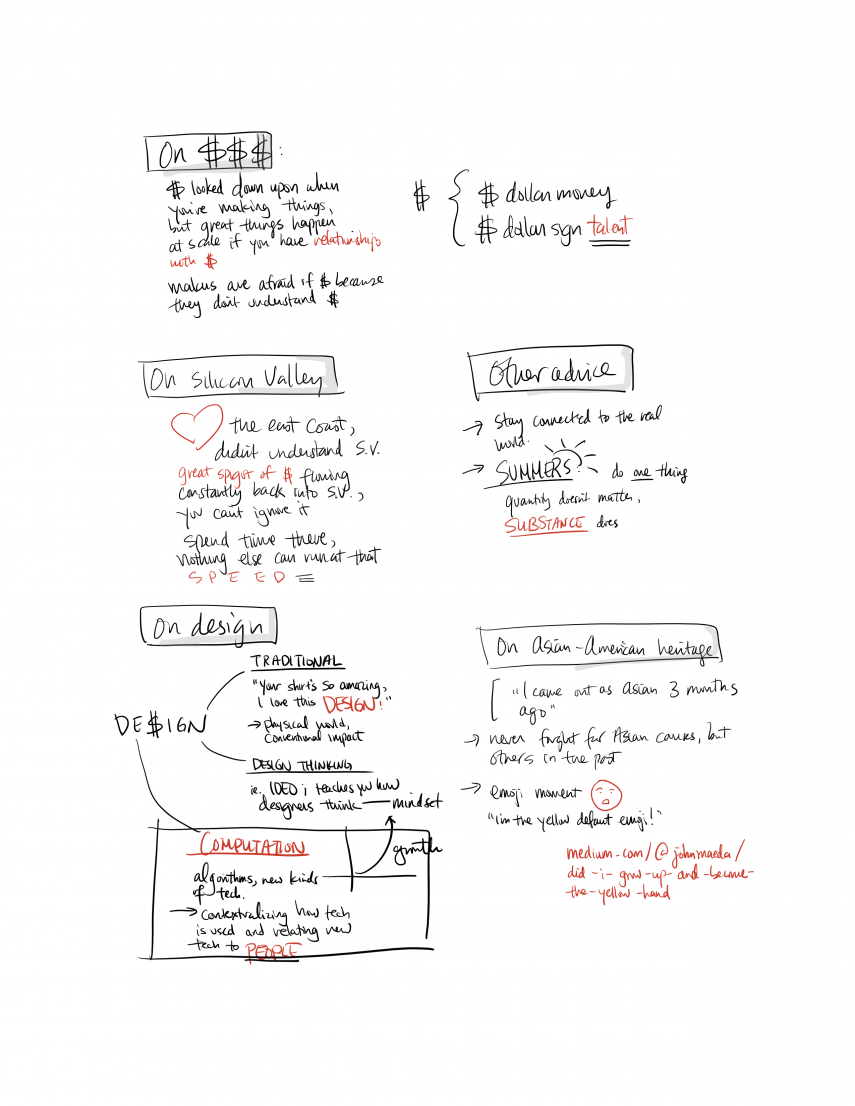 On $$$:
$ looked down upon when
you're making things,
but great things happen
at scale if you have relationships
with $
makers are afraid if $ because
they don't understand $
$
$ dollar money
$ dollar sign talent
On Silicon Valley
the east coast,
didn't understand S.V.
great spigot of $ flowing
constantly back into S.V.,
you can't ignore it
spend time there,
nothing else can run at that
SPEED
Other advice
→ Stay connected to the real
world.
→ SUMMERS do one thing
quantity doesn't matter,
SUBSTANCE does
On design
DE$IGN
TRADITIONAL
"Your shirt's so amazing,
I love this DESIGN!"
→ physical world,
conventional impact
DESIGN THINKING
ie. IDEO; teaches you how
designers think — mindset
growth
COMPUTATION
algorithms, new kinds
of tech.
→ contextralizing how tech
is used and relating new
tech to PEOPLE
On Asian-American heritage
"I came out as Asian 3 months
ago"
→ never fought for Asian causes, but
others in the past
→ emoji moment
"I'm the yellow default emoji!"
medium.com/@johnmaeda/
did-i-grow-up-and-become-
the-yellow-hand